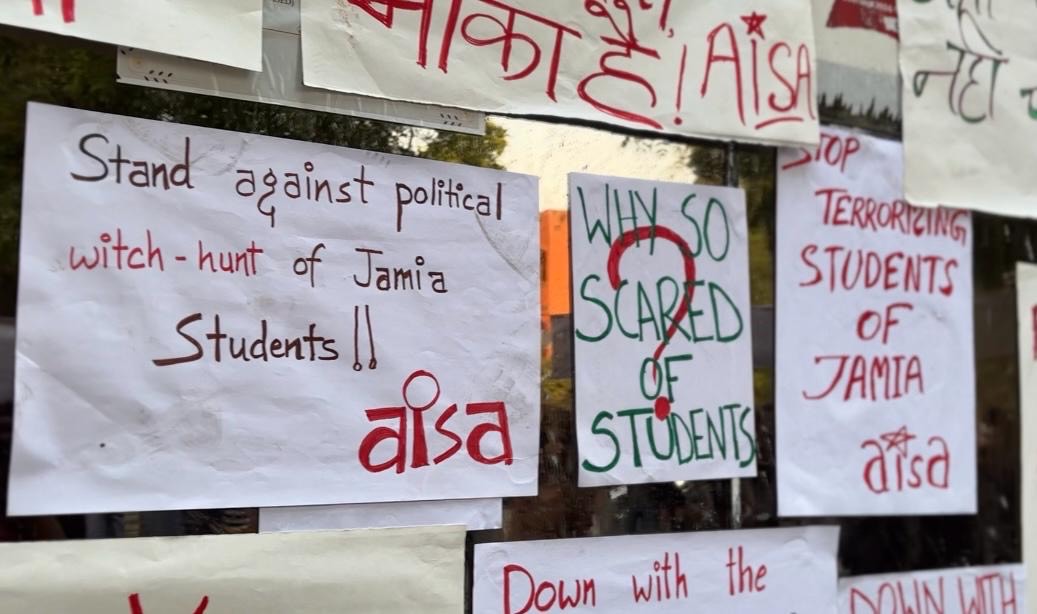 है!
AISA
नहीं
Stand against political
witch-hunt of Jamia
Students!!
aisa
WHY SO
SCARED
OF
STUDENTS
?
STOP
TERRORIZING
STUDENTS
OF
JAMIA
aisa
Down with the
DOWN WITH